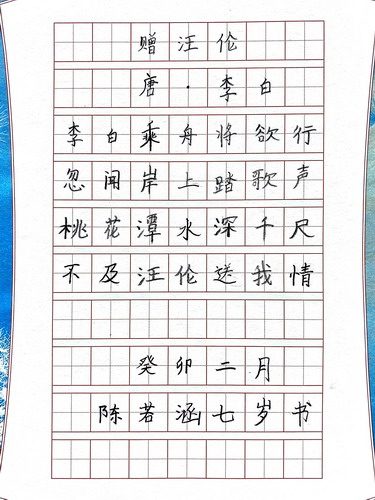 赠汪伦
唐·李白
李白乘舟将欲行
忽闻岸上踏歌声
桃花潭水深千尺
不及汪伦送我情
癸卯二月
陈若涵七岁书